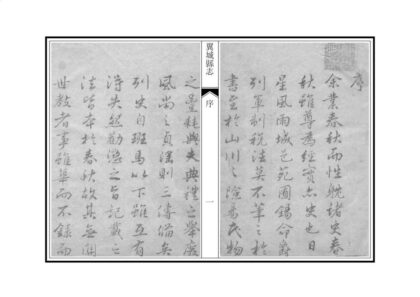 序
余業春秋而性躭諸史春
秋雖尊為經實亦史也日
星風雨城邑苑囿錫命爵
列軍制稅法莫不筆之於
書至於山川之險易民物
翼城縣志
序
一
之登耗典夫典禮之舉廢
風尚之貞淫則三傳備矣
列史自班馬以下雖互有
得失然勸懲之旨記載之
法皆本於春秋故其無關
世教者事雖華而不錄而